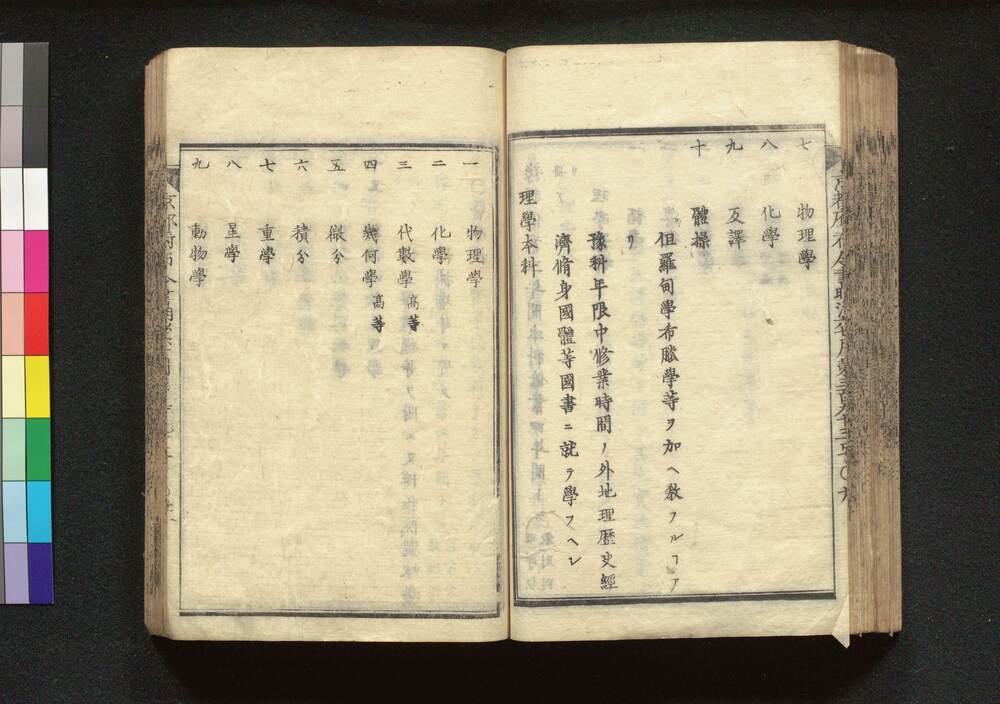 七 物理學
八 化學
九 反譯
十 體操
但羅甸學布臘學等ヲ加ヘ教フルヿア
リ
豫科年限中修業時間ノ外地理歴史經
濟脩身國體等國書ニ就テ學フヘシ
理學本科
一 物理學
二 化學
三 代數學 高等
四 幾何學 高等
五 微分
六 積分
七 重學
八 星學
九 動物學